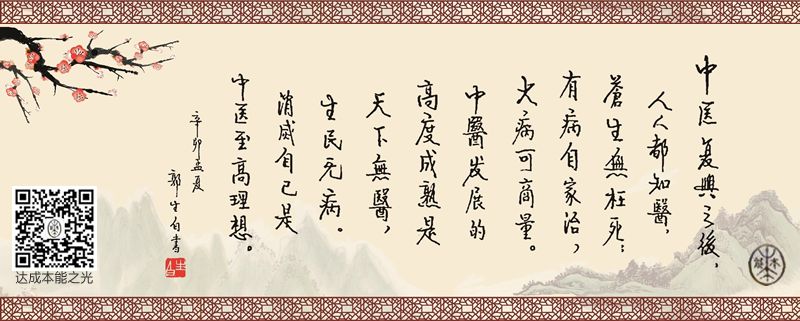 中医复興之後，
人人都知醫，
蒼生無枉死；
有病自家治，
大病可商量。
中醫发展的
高度成熟是
天下無醫，
生民无病。
消滅自己是
中医至高理想。
辛卯孟夏
郭生白書
达成本能之光